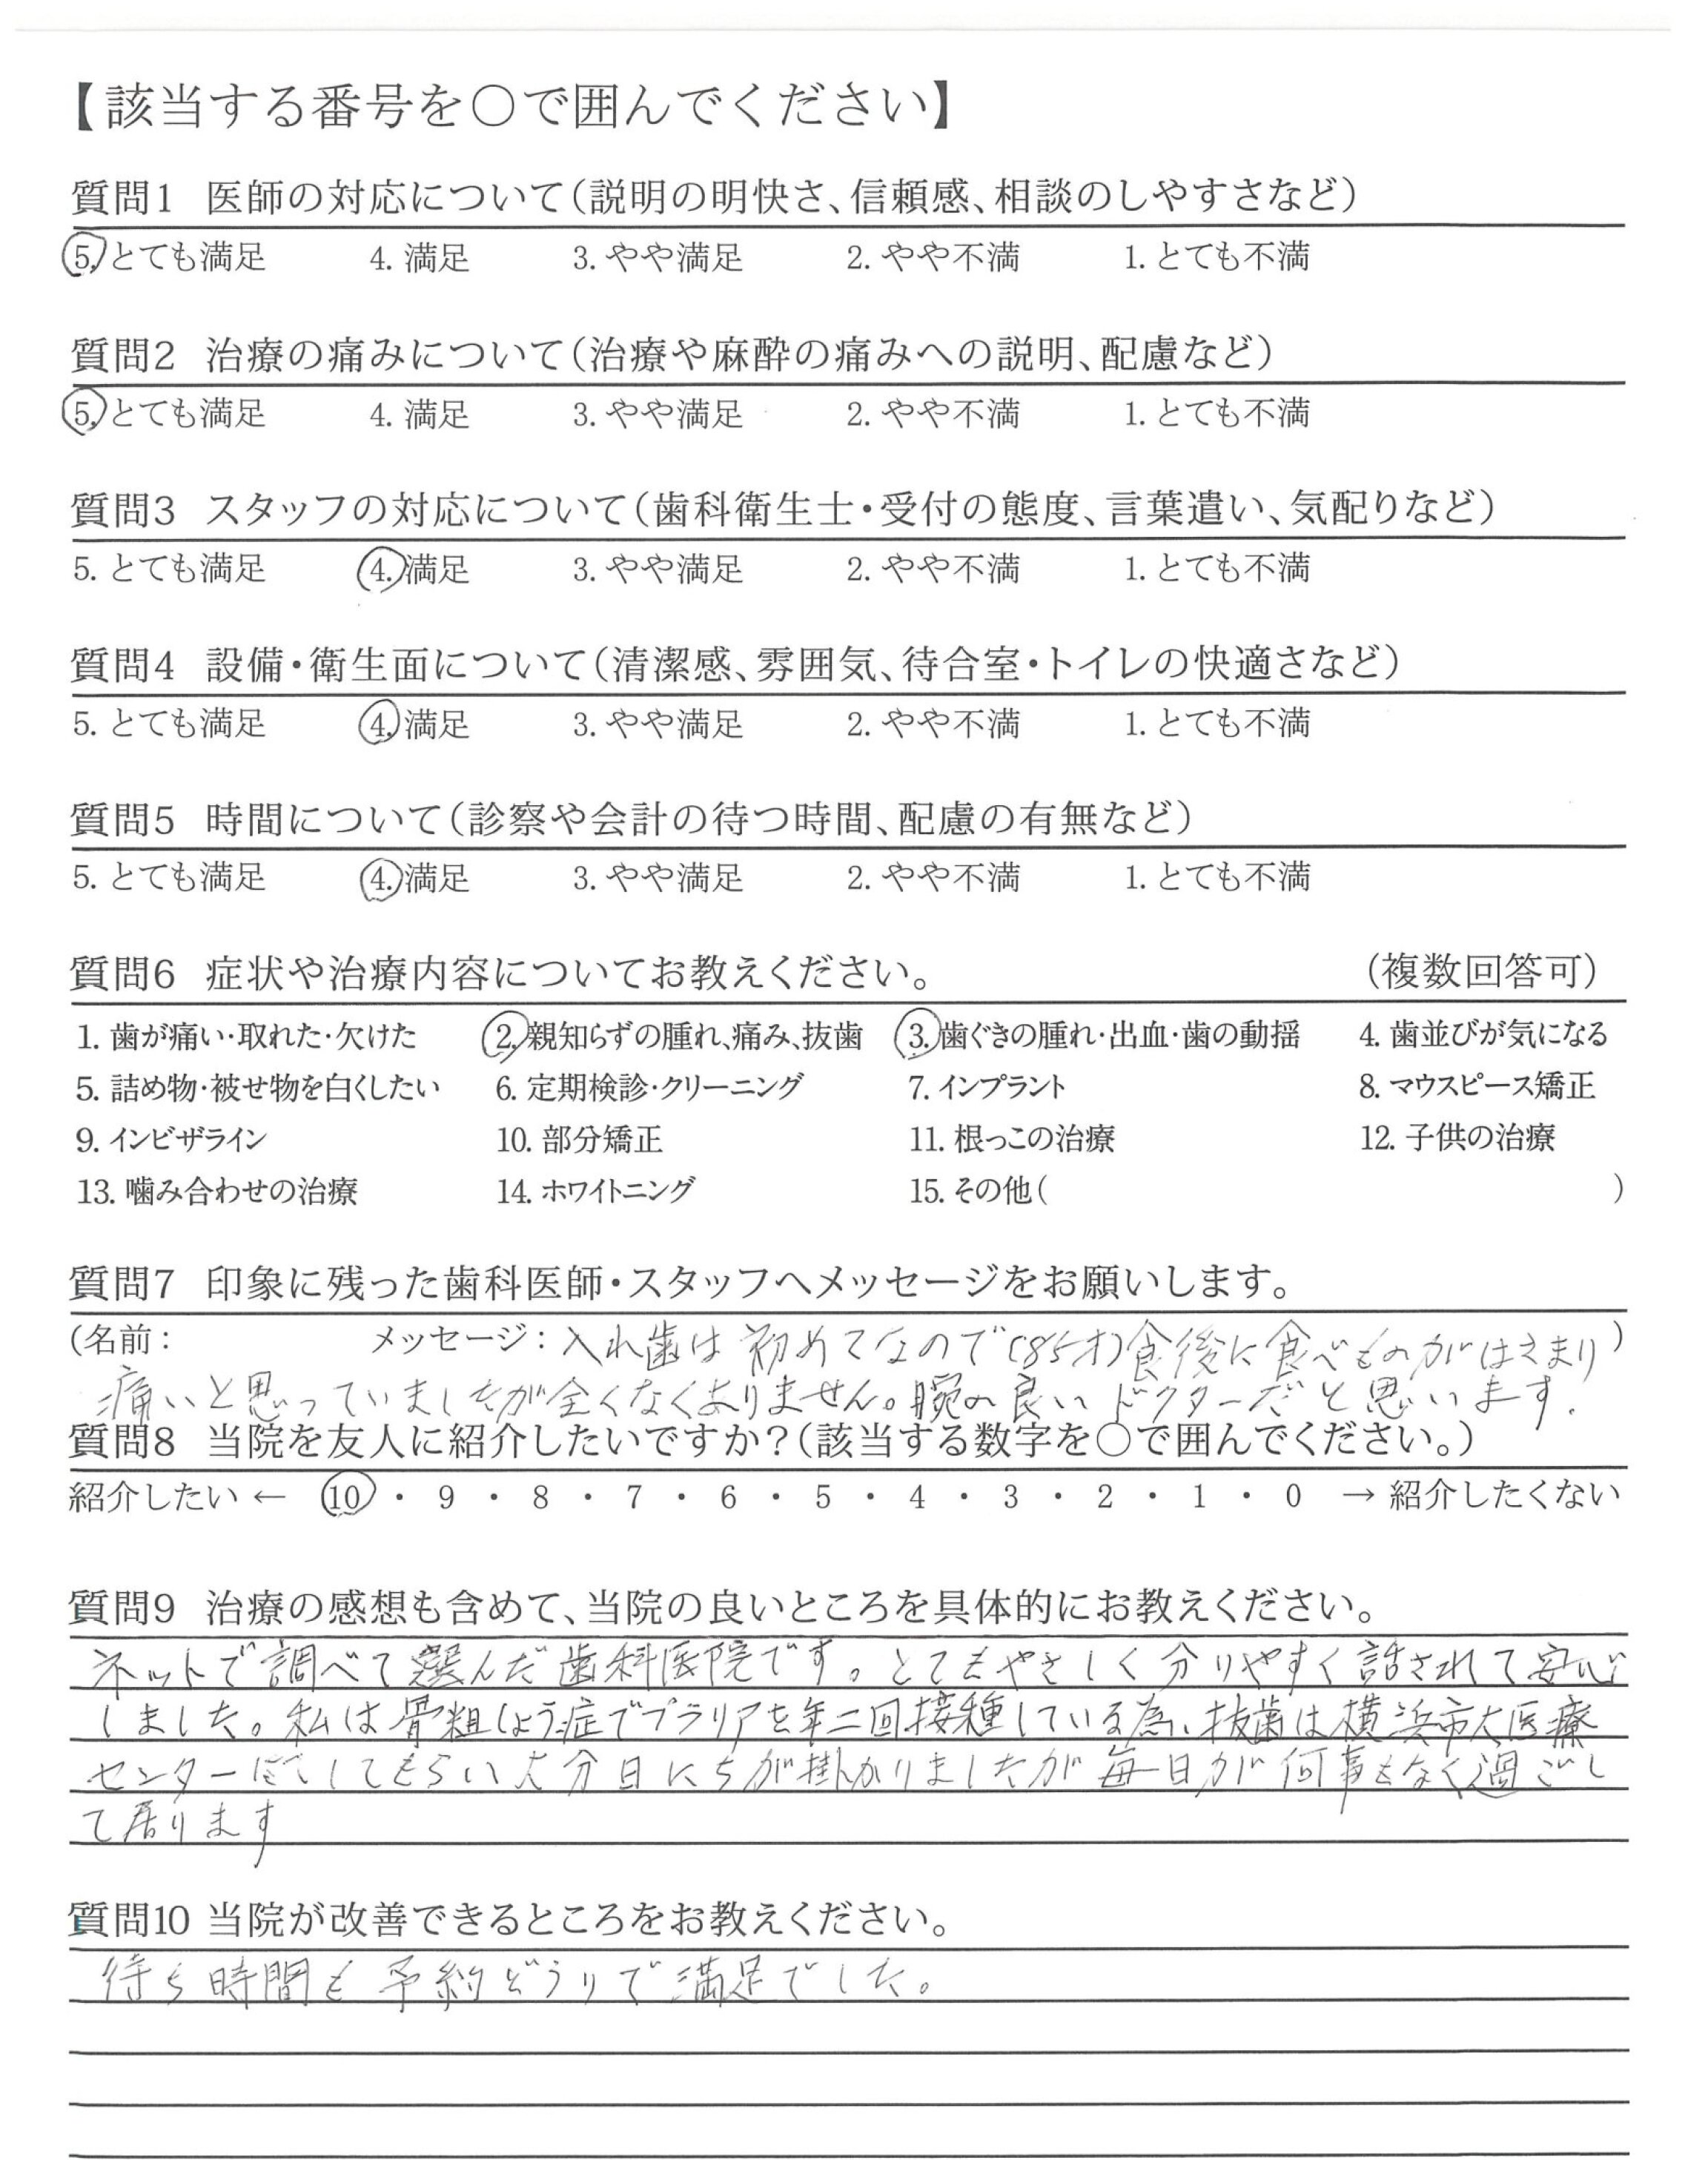 【該当する番号を○で囲んでください】
質問1 医師の対応について(説明の明快さ、信頼感、相談のしやすさなど)
5. とても満足 4. 満足 3. やや満足 2. やや不満 1. とても不満
質問2 治療の痛みについて(治療や麻酔の痛みへの説明、配慮など)
5. とても満足 4. 満足 3. やや満足 2. やや不満 1. とても不満
質問3 スタッフの対応について(歯科衛生士・受付の態度、言葉遣い、気配りなど)
5. とても満足 4. 満足 3. やや満足 2. やや不満 1. とても不満
質問4 設備・衛生面について(清潔感、雰囲気、待合室・トイレの快適さなど)
5. とても満足 4. 満足 3. やや満足 2. やや不満 1. とても不満
質問5 時間について(診察や会計の待つ時間、配慮の有無など)
5. とても満足 4. 満足 3. やや満足 2. やや不満 1. とても不満
質問6 症状や治療内容についてお教えください。 (複数回答可)
1. 歯が痛い・取れた・欠けた 2. 親知らずの腫れ、痛み、抜歯 3. 歯ぐきの腫れ・出血・歯の動揺 4. 歯並びが気になる
5. 詰め物・被せ物を白くしたい 6. 定期検診・クリーニング 7. インプラント 8. マウスピース矯正
9. インビザライン 10. 部分矯正 11. 根っこの治療 12. 子供の治療
13. 噛み合わせの治療 14. ホワイトニング 15. その他( )
質問7 印象に残った歯科医師・スタッフへメッセージをお願いします。
(名前: メッセージ: 入れ歯は初めてなので(85才)食後に食べものがはさまり)
痛いと思っていましたが全くなくありません。腕の良いドクターだと思います.
質問8 当院を友人に紹介したいですか?(該当する数字を○で囲んでください。)
紹介したい ← 10 ・ 9 ・ 8 ・ 7 ・ 6 ・ 5 ・ 4 ・ 3 ・ 2 ・ 1 ・ 0 → 紹介したくない
質問9 治療の感想も含めて、当院の良いところを具体的にお教えください。
ネットで調べて選んだ歯科医院です。とてもやさしく分りやすく話されて安心
しました。私は骨粗しょう症でプラリアを年二回接種している為、抜歯は横浜市大医療
センターにてしてもらい大分日にちが掛かりましたが毎日が何事もなく過ごし
て居ります
質問10 当院が改善できるところをお教えください。
待ち時間も予約どうりで満足でした。